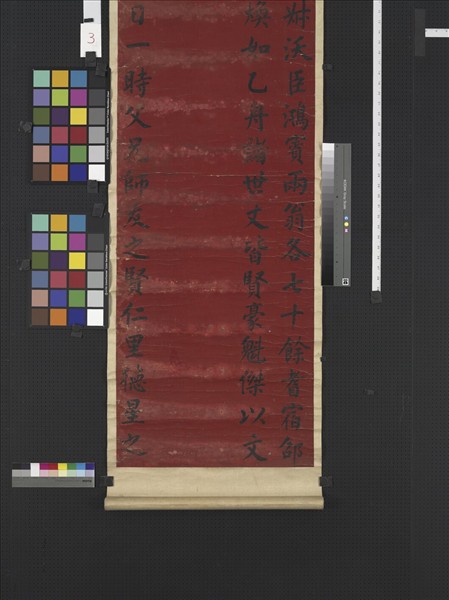 沃臣鴻賓兩翁各七十餘耆宿
煥如乙舟諸世丈皆賢豪魁傑以文
日一時父兄師友之賢仁里德星之
3